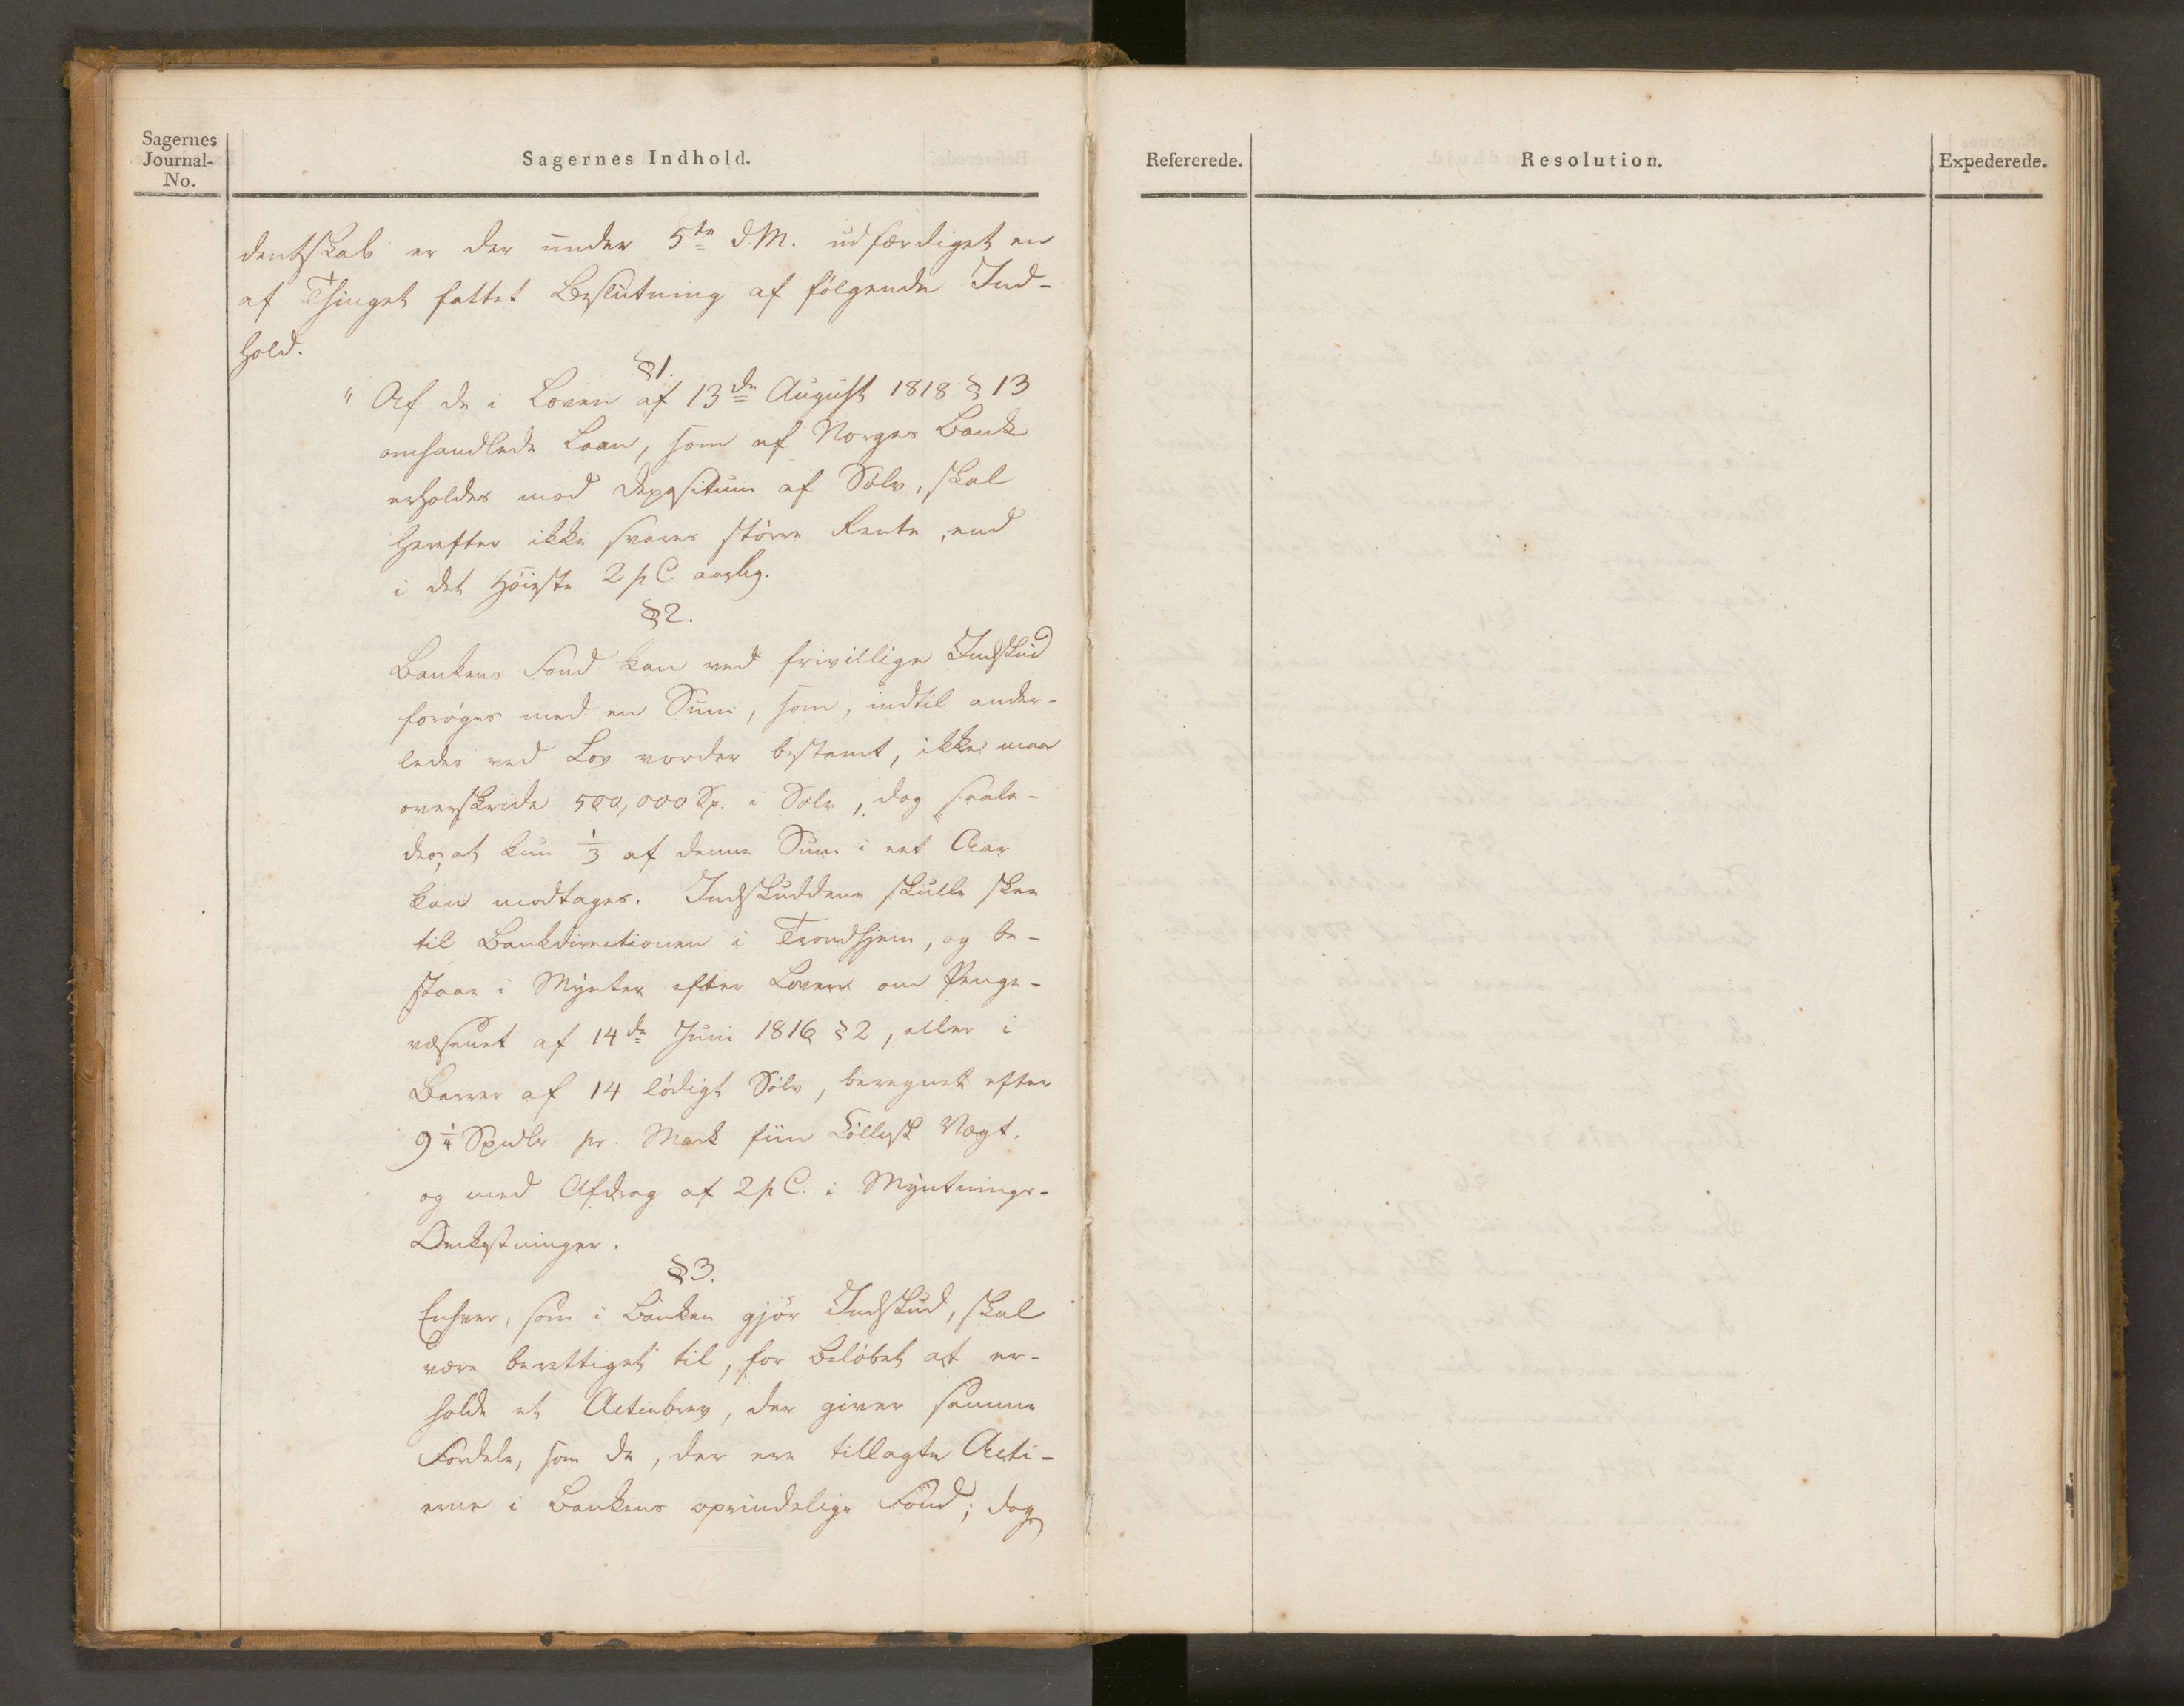 Sagernes
Journal-
No.
Sagernes Indhold.
dentskab er der under 5te d.M. udfærdiget en
af Thinget fattet Beslutning af følgende Ind-
hold.
§1.
" Af de i Loven af 13de August 1818 § 13
omhandlede Laan, som af Norges Bank
erholdes mod Depositum af Sølv, skal
herefter ikke svares større Rente, end
i det Høieste 2 p C. aarlig.
§2.
Bankens Fond kan ved frivillige Indskud
forøges med en Sum, som, indtil ander-
ledes ved Lov vorder bestemt, ikke maa
overskride 500,000 Sp. i Sølv, dog saale-
des, at kun 1/3 af denne Sum i eet Aar
kan modtages. Indskuddene skulle skee
til Bankdirectionen i Trondhjem, og be-
staae i Mynter efter Loven om Penge-
væsenet af 14de Juni 1816 § 2, eller i
Barrer af 14 lødigt Sølv, beregnet efter
9 1/4 Spedlr. pr. Mark fiin Cøllnsk Vægt,
og med Afdrag af 2 p C. i Myntnings-
Omkostninger.
§3.
Enhver, som i Banken gjør Indskud, skal
være berettiget til, for Beløbet at er-
holde et Actiebrev, der giver samme
Fordele, som de, der ere tillagte Acti-
erne i Bankens oprindelige Fond; dog
Refererede.
Resolution.
Expederede.